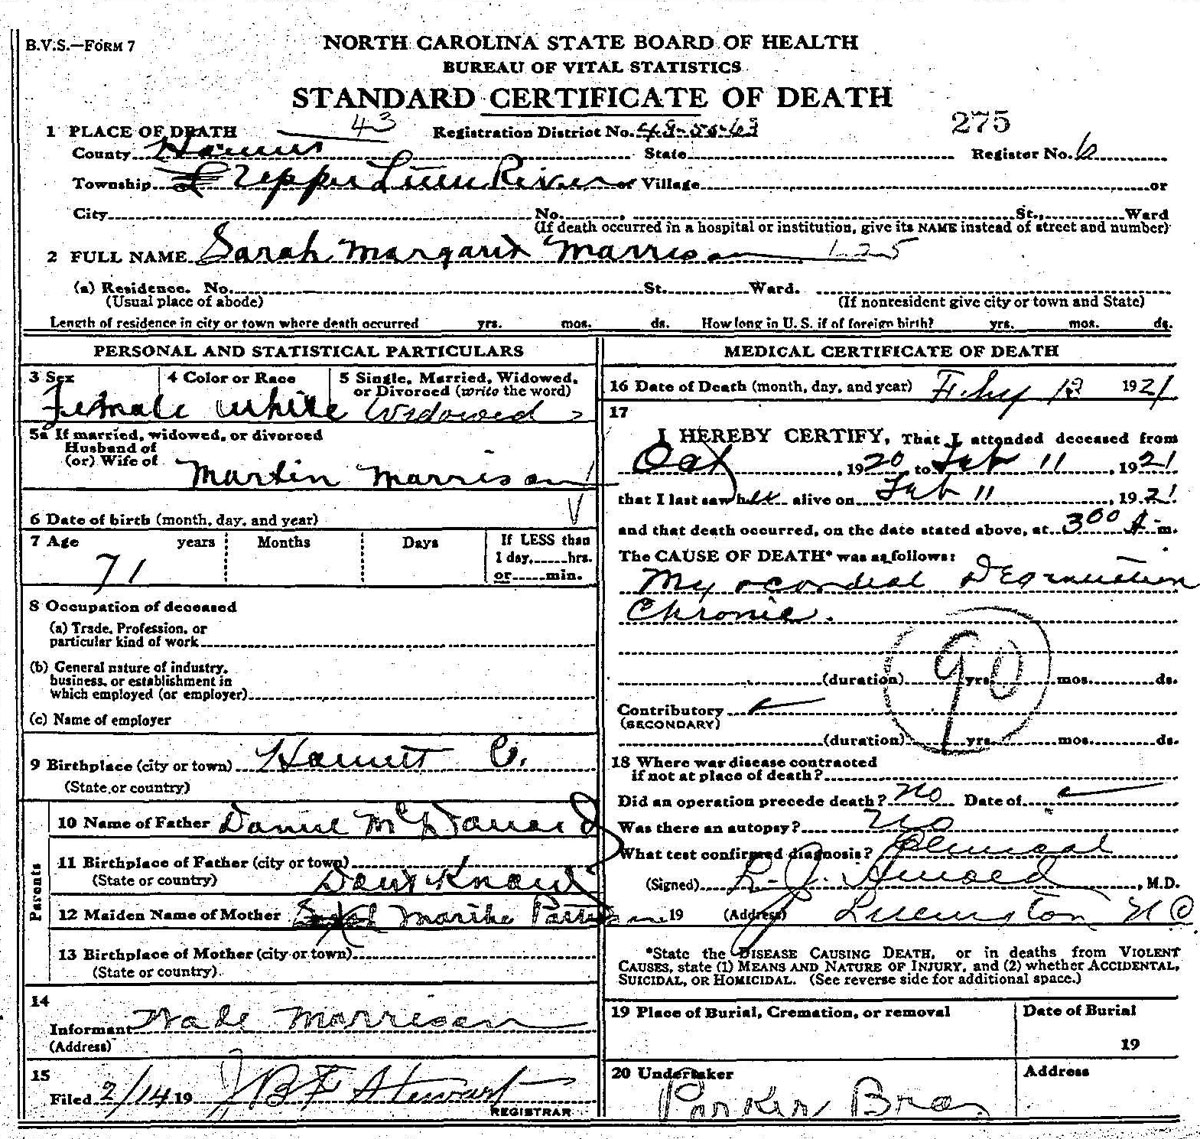 B.V.S.—FORM 7
NORTH CAROLINA STATE BOARD OF HEALTH
BUREAU OF VITAL STATISTICS
STANDARD CERTIFICATE OF DEATH
1 PLACE OF DEATH 43 Registration District No. 275
County State Register No. 6
Township Upper Little River or Village or
City No. , St., Ward
(If death occurred in a hospital or institution, give its NAME instead of street and number)
2 FULL NAME Sarah Margaret Morrison 125
(a) Residence. No. St. Ward.
(Usual place of abode) (If nonresident give city or town and State)
Length of residence in city or town where death occurred yrs. mos. ds. How long in U. S. if of foreign birth? yrs. mos. ds.
PERSONAL AND STATISTICAL PARTICULARS
3 Sex 4 Color or Race 5 Single, Married, Widowed, or Divorced (write the word)
Female White Widowed
5a If married, widowed, or divorced
Husband of
(or) Wife of Martin Morrison
6 Date of birth (month, day, and year)
7 Age years Months Days If LESS than
1 day,......hrs.
71 or......min.
8 Occupation of deceased
(a) Trade, Profession, or
particular kind of work
(b) General nature of industry,
business, or establishment in
which employed (or employer)
(c) Name of employer
9 Birthplace (city or town) Harnett Co.
(State or country)
Parents
10 Name of Father Daniel
11 Birthplace of Father (city or town)
(State or country) Dont Know
12 Maiden Name of Mother Martha
13 Birthplace of Mother (city or town)
(State or country)
14
Informant Morrison
(Address)
15
Filed 2/14 19 Stewart
REGISTRAR
MEDICAL CERTIFICATE OF DEATH
16 Date of Death (month, day, and year) Feby 1921
17
I HEREBY CERTIFY, That I attended deceased from
Oct , 1920, to Feb 11, 1921
that I last saw her alive on Feb 11, 1921
and that death occurred, on the date stated above, at 3 00 A. m.
The CAUSE OF DEATH* was as follows:
Myocordial
Chronic.
90
(duration) yrs. mos. ds.
Contributory
(SECONDARY)
(duration) yrs. mos. ds.
18 Where was disease contracted
if not at place of death?
Did an operation precede death? No Date of
Was there an autopsy? No
What test confirmed diagnosis? Clinical
(Signed) , M.D.
19 (Address) N C
*State the DISEASE CAUSING DEATH, or in deaths from VIOLENT
CAUSES, state (1) MEANS AND NATURE OF INJURY, and (2) whether ACCIDENTAL,
SUICIDAL, OR HOMICIDAL. (See reverse side for additional space.)
19 Place of Burial, Cremation, or removal Date of Burial
19
20 Undertaker Address
Parker Bros